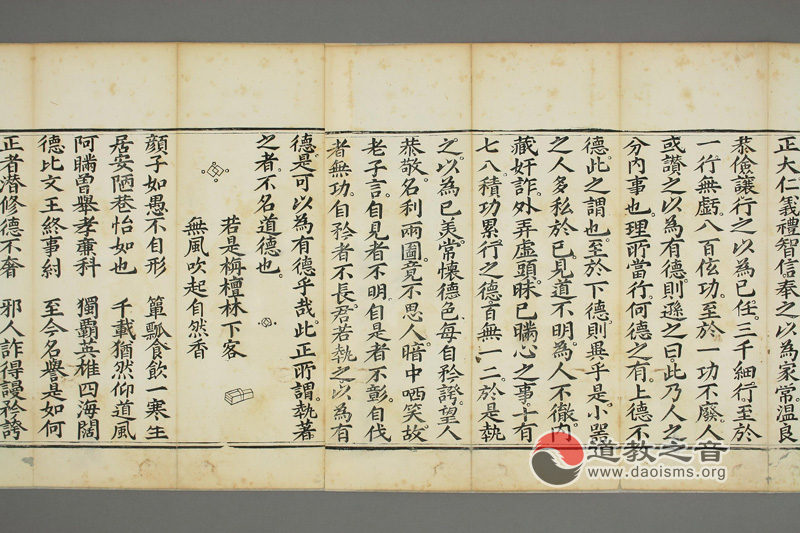 正大仁義禮智信奉之以為家常溫良
恭儉讓行之以為己任三千細行至於
一行無虧八百佐功至於一功不廢人
或讚之以為有德則遜之曰此乃人之
分內事也理所當行何德之有上德不
德此之謂也至於下德則異乎是小器
之人多私於己見道不明為人不徹內
藏奸詐外弄虛頭昧己瞞心之事十有
七八積功累行之德百無一二於是執
之以為己美常懷德色每自矜誇望人
恭敬名利兩圖竟不思人暗中哂笑故
老子言自見者不明自是者不彰自伐
者無功自矜者不長君若執之以為有
德是可以為有德乎哉此正所謂執著
之者不名道德也
若是栴檀林下客
無風吹起自然香
顏子如愚不自形 簞瓢食飲一寒生
居安陋巷怡如也 千載猶然仰道風
阿瞞曾舉孝廉科 獨霸英雄四海闊
德比文王終事紂 至今名譽是如何
正者潛修德不奢 邪人詐得謾矜誇
道教之音
www.daoisms.org